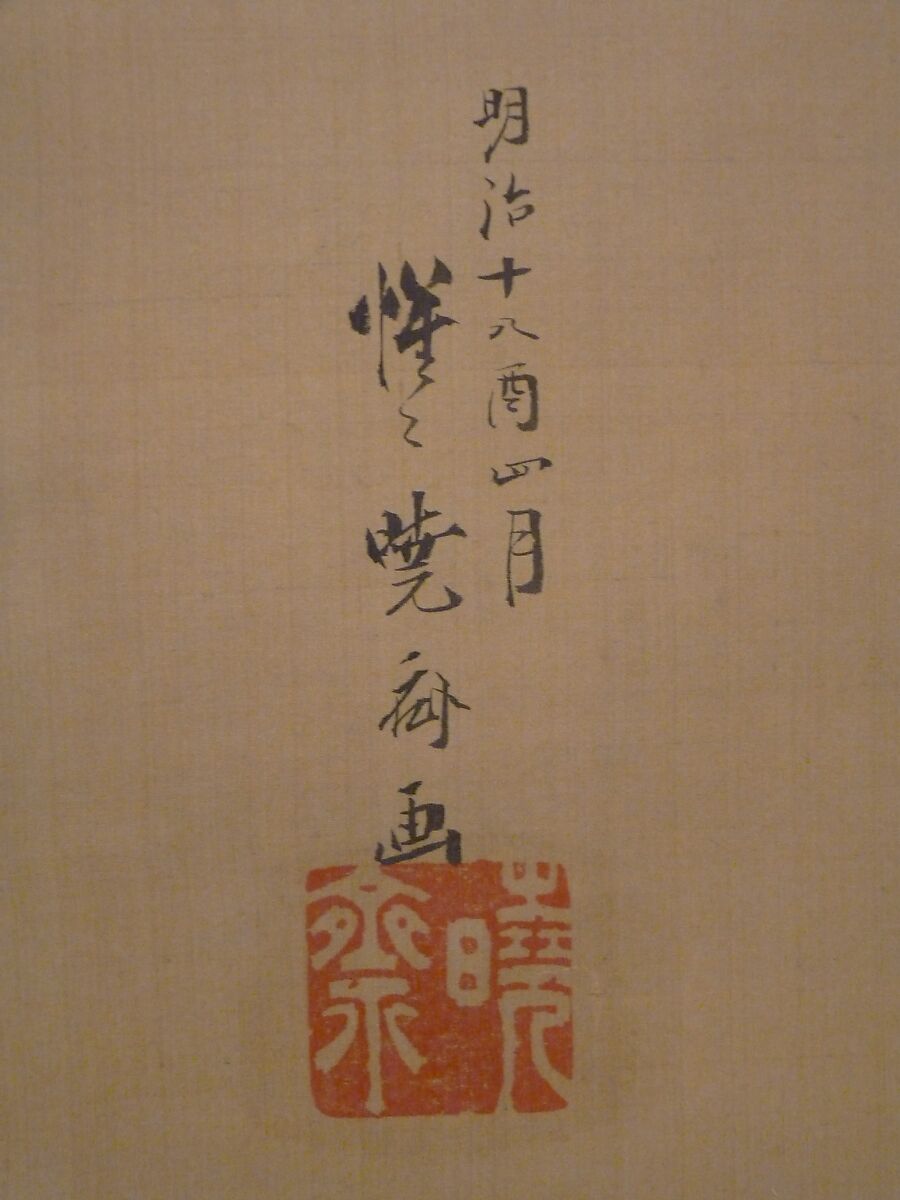 明治十八酉四月
惺々暁斎画
暁斎